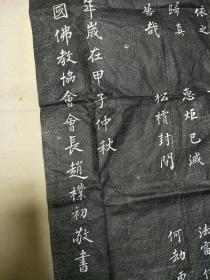 依之
歸真
哉
慧炬已滅
松櫝封閉
法雷
何劫
年歲在甲子仲秋
國佛教協會會長趙樸初敬書